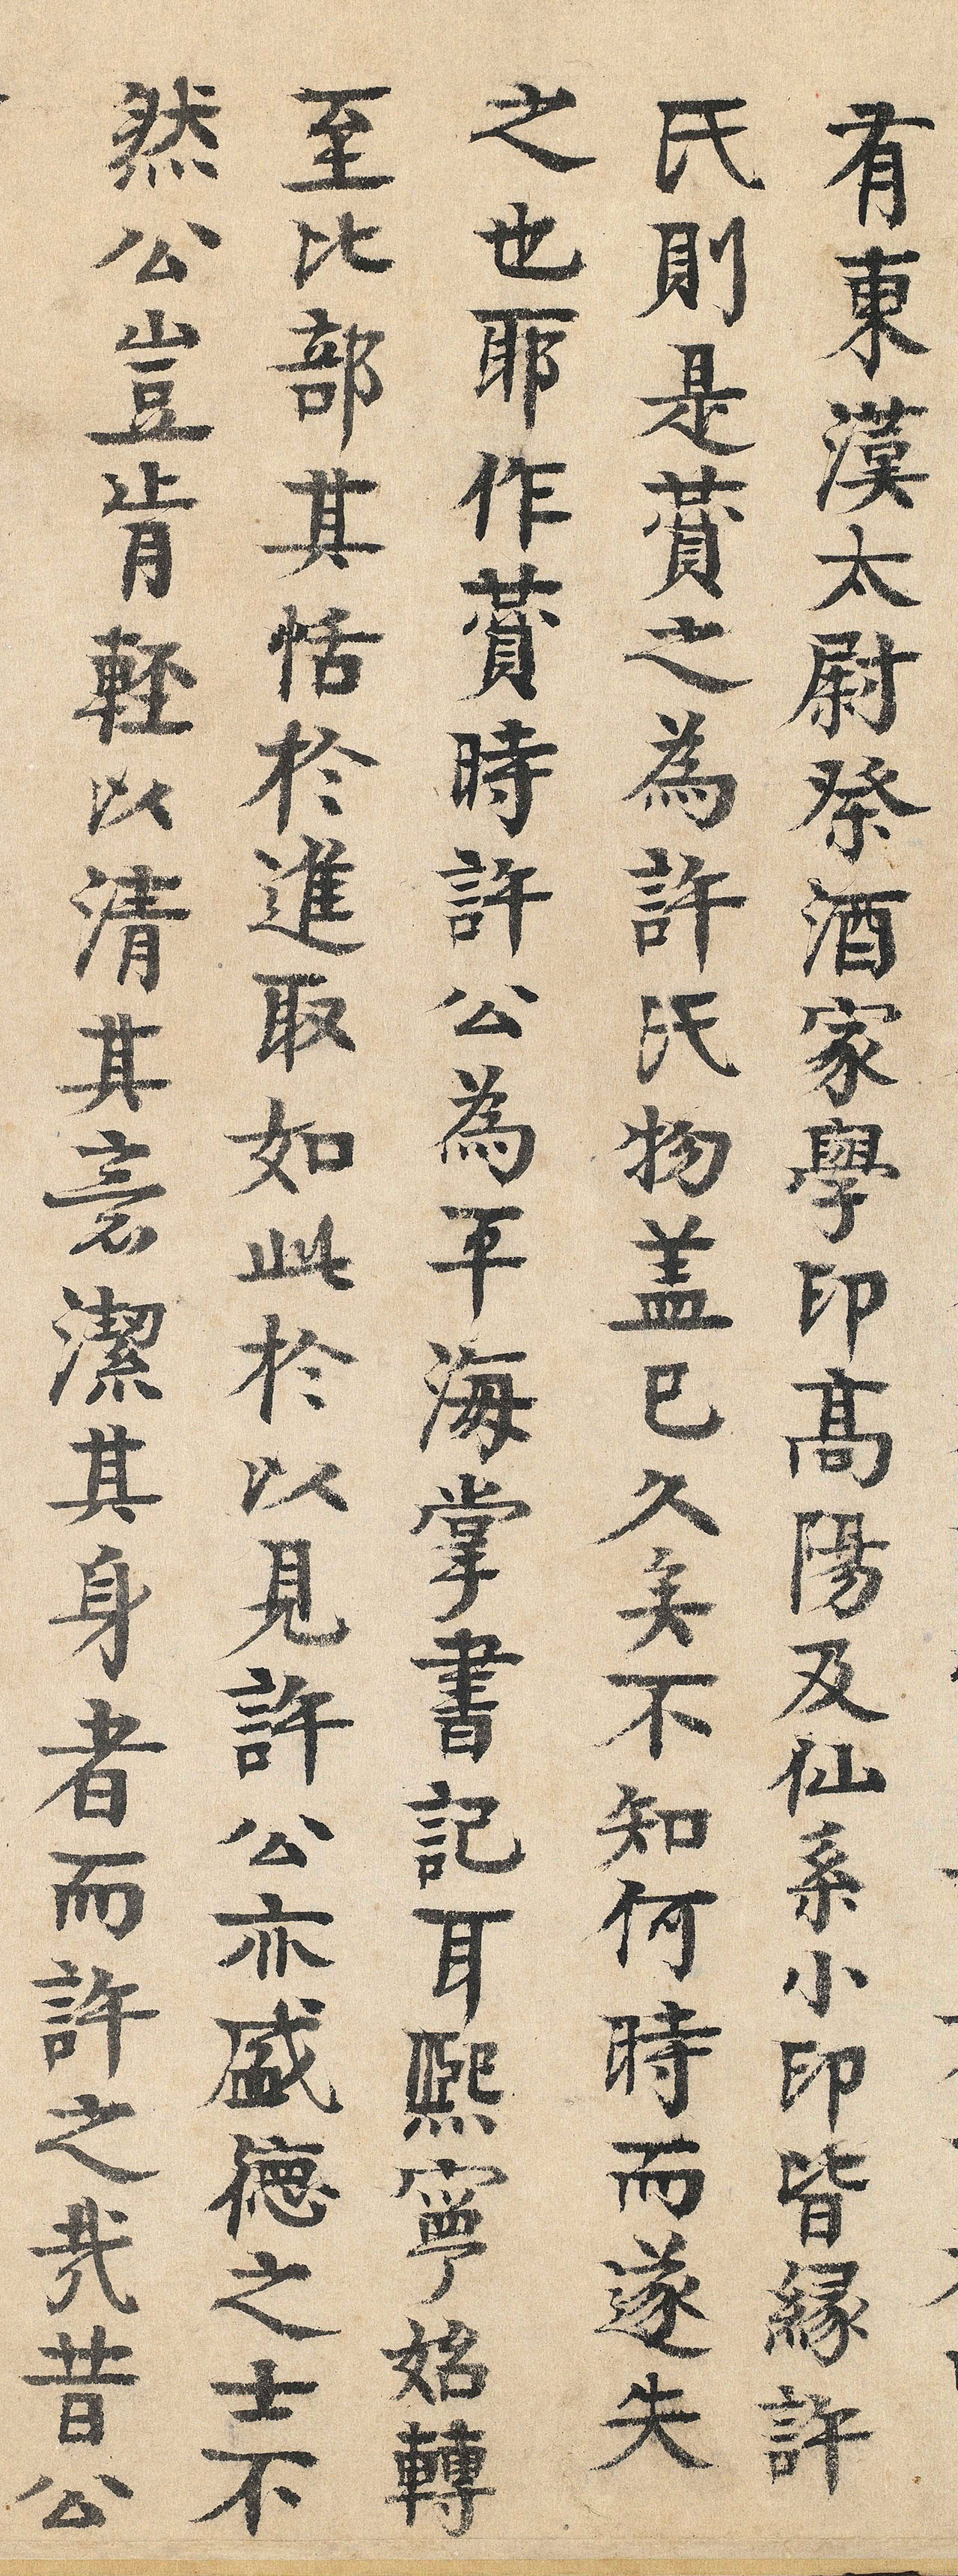 有東漢太尉祭酒家學印高陽及仙系小印皆緣許
氏則是蕒之為許氏物盖已久矣不知何時而遂失
之也耶作蕒時許公為平海掌書記耳熈寧始轉
至比部其恬於進取如此於以見許公亦盛德之士不
然公豈肯輕以清其意潔其身者而許之哉昔公